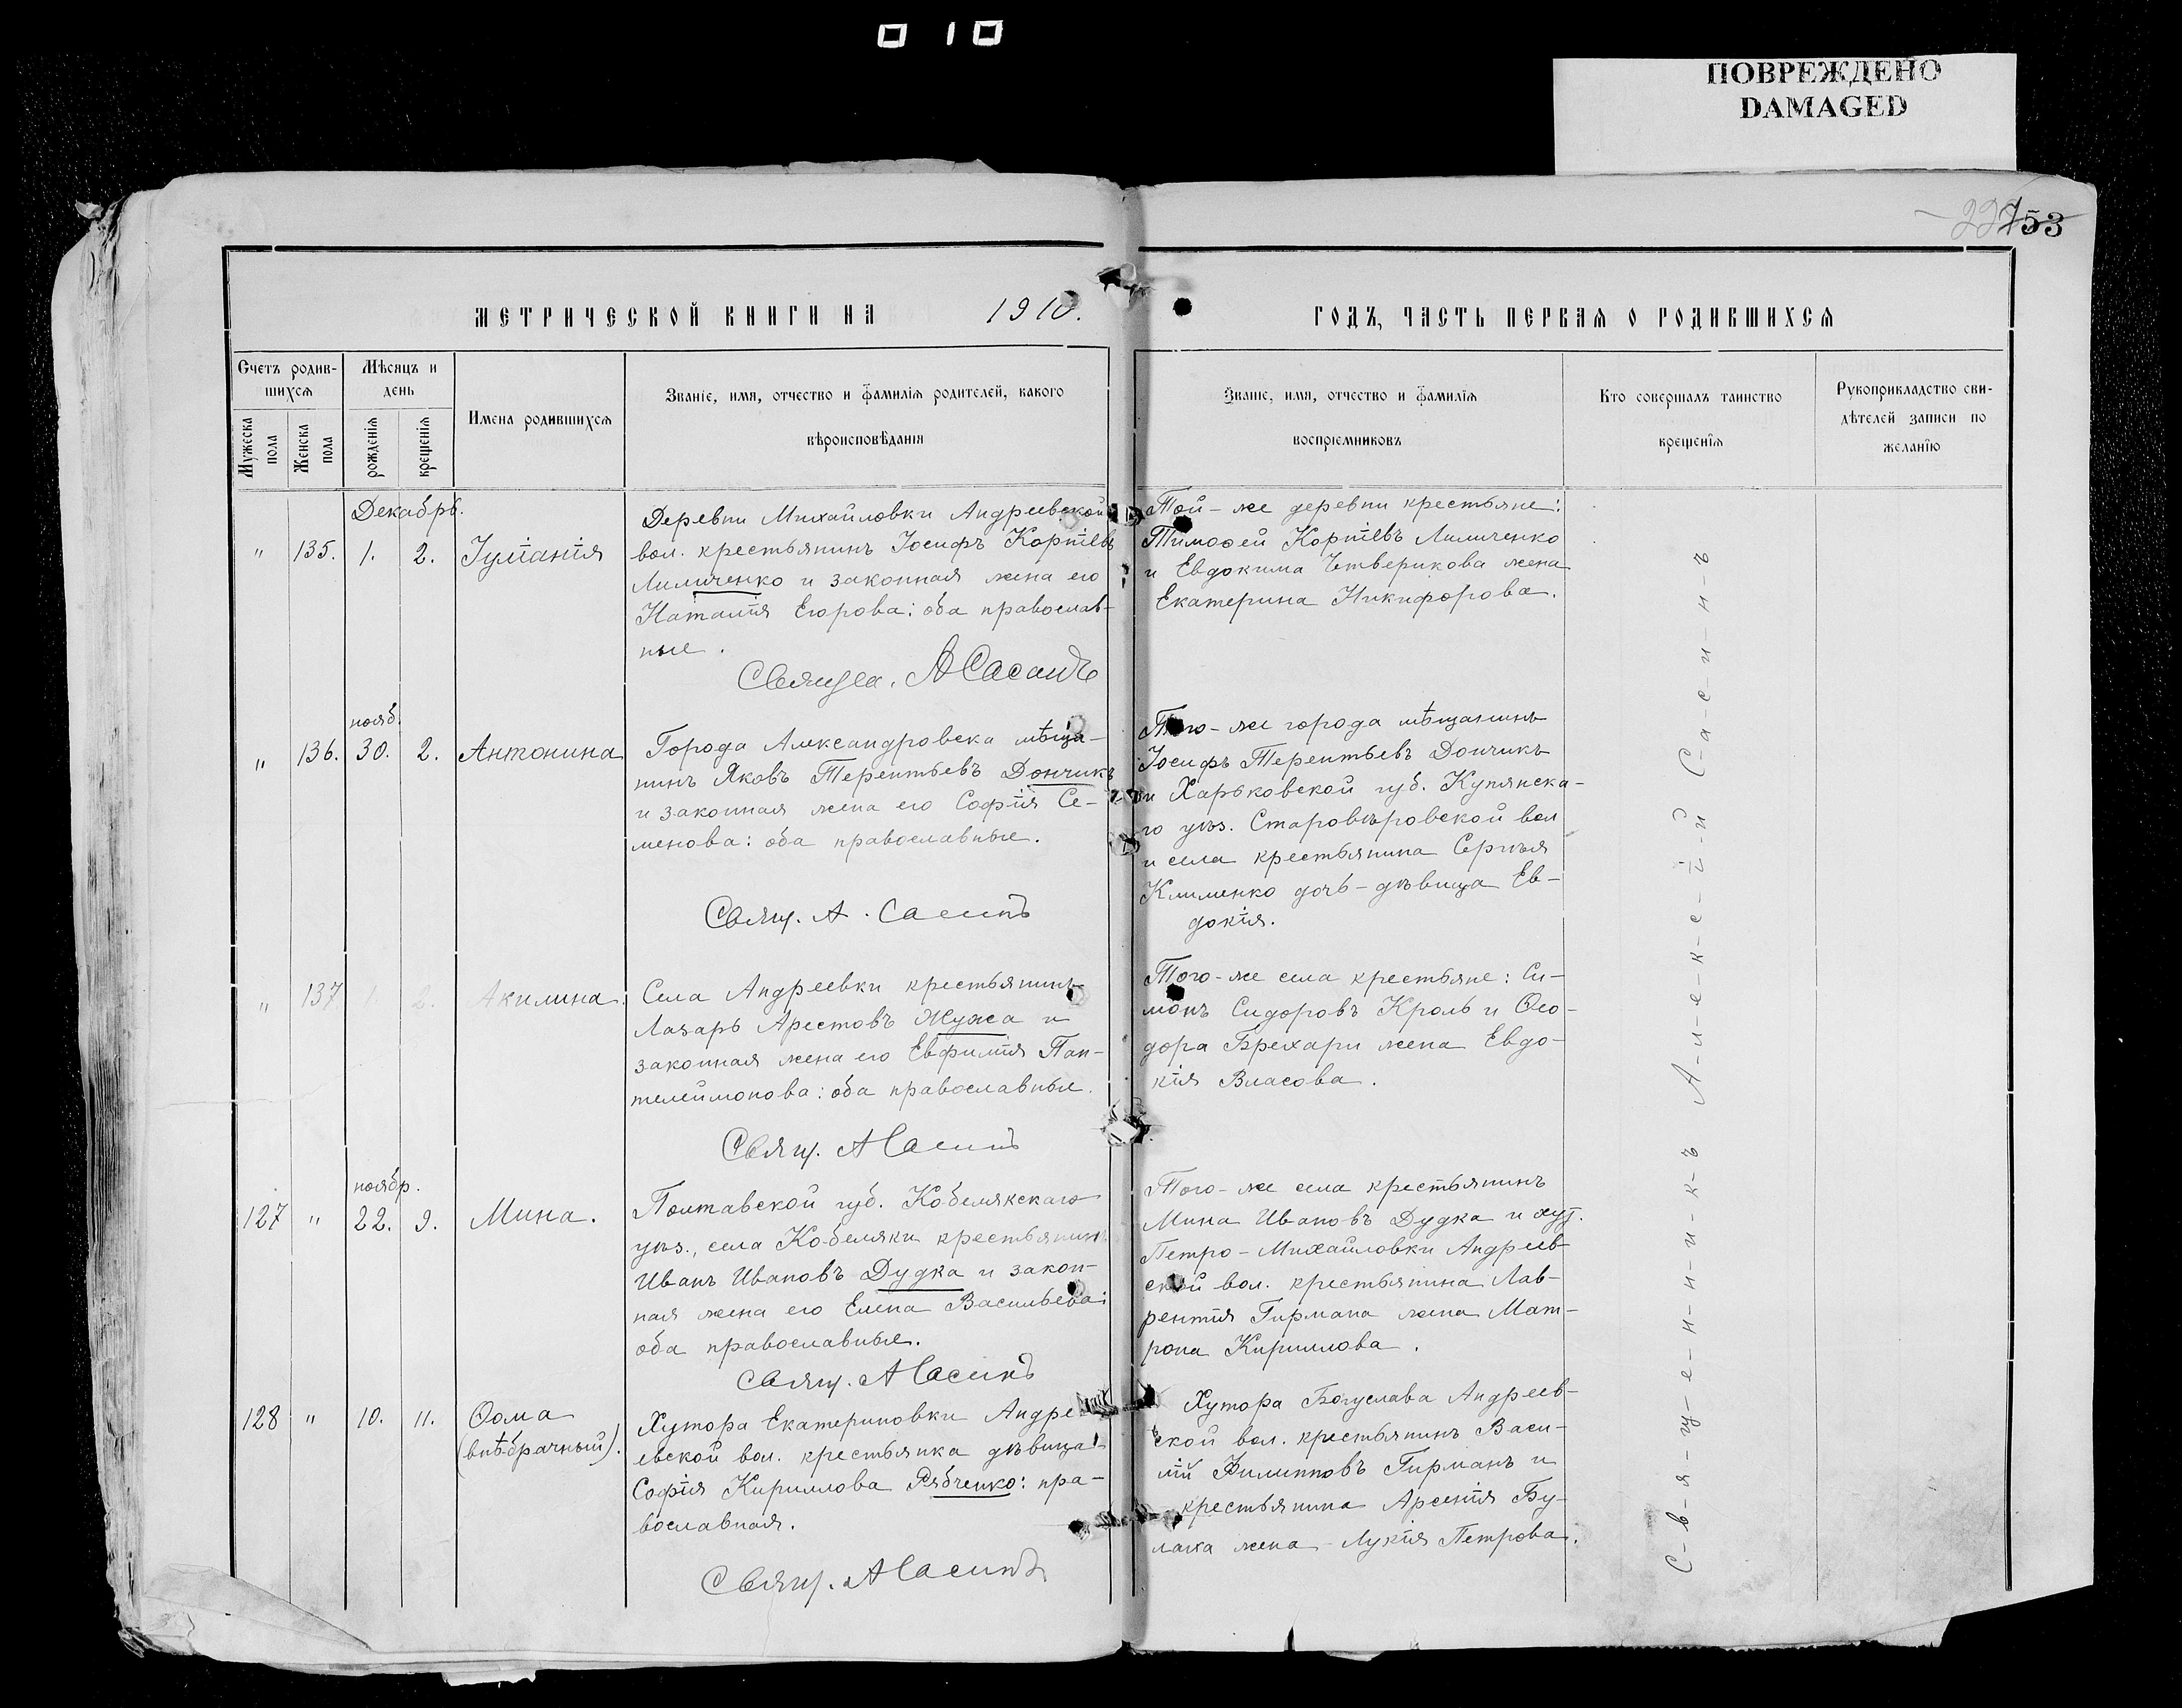 010
ПОВРЕЖДЕНО
DAMAGED
53
МЕТРИЧЕСКОЙ КНИГИ НА 1910. ГОДЪ, ЧАСТЬ ПЕРВАЯ О РОДИВШИХСЯ
Счетъ родив-
шихся
Мужеска
пола
Женска
пола
Мѣсяцъ и
день
рожденія
крещенія
Имена родившихся
Званіе, имя, отчество и фамилія родителей, какого
вѣроисповѣданія
Званіе, имя, отчество и фамилія
воспріемниковъ
Кто совершалъ таинство
крещенія
Рукоприкладство сви-
дѣтелей записи по
желанію
Декабрь.
" 135. 1. 2. Іуліанія
Деревни Михайловки Андреевской
вол. крестьянинъ Іосифъ Корніевъ
Лимиченко и законная жена его
Наталія Егорова: оба православ-
ные.
Священ. А Сасинъ
Той-же деревни крестьяне:
Тимоѳей Корніевъ Лимиченко
и Евдокима Четверикова жена
Екатерина Никифорова.
нояб.
" 136. 30. 2. Антонина
Города Александровска мѣща-
нинъ Яковъ Терентьевъ Дончикъ
и законная жена его Софія Се-
менова: оба православные.
Свящ. А. Сасинъ
Того-же города мѣщанинъ
Іосифъ Терентьевъ Дончикъ
и Харьковской губ. Купянска-
го уѣз. Старовѣровской вол
и села крестьянина Сергѣя
Клименко дочь-дѣвица Ев-
докія.
" 137 1. 2. Акилина
Села Андреевки крестьянинъ
Лазарь Арестовъ Жужа и
законная жена его Евфимія Пан-
телеймонова: оба православные.
Свящ. А Сасинъ
Того-же села крестьяне: Си-
монъ Сидоровъ Кроль и Ѳео-
дора Брехари жена Евдо-
кія Власова.
ноябр.
127 " 22. 9. Мина.
Полтавской губ. Кобелякскаго
уѣз., села Кобеляки крестьянинъ
Иванъ Ивановъ Дудка и закон-
ная жена его Елена Васильева:
оба православные.
Свящ. А Сасинъ
Того-же села крестьянинъ
Мина Ивановъ Дудка и хут.
Петро-Михайловки Андреев-
ской вол. крестьянина Лав-
рентія Гирмана жена Мат-
рона Кириллова.
128 " 10. 11. Ѳома
(внѣбрачный).
Хутора Екатериновки Андре-
евской вол. крестьянка дѣвица
Софія Кириллова Рябченко: пра-
вославная.
Свящ. А Сасинъ
Хутора Богуслава Андреев-
ской вол. крестьянинъ Васи-
лій Филипповъ Гирманъ и
крестьянина Арсенія Бу-
лака жена Лукія Петрова.
С-в-я-щ-е-н-н-и-к-ъ А-л-е-к-с-ѣ-й С-а-с-и-н-ъ